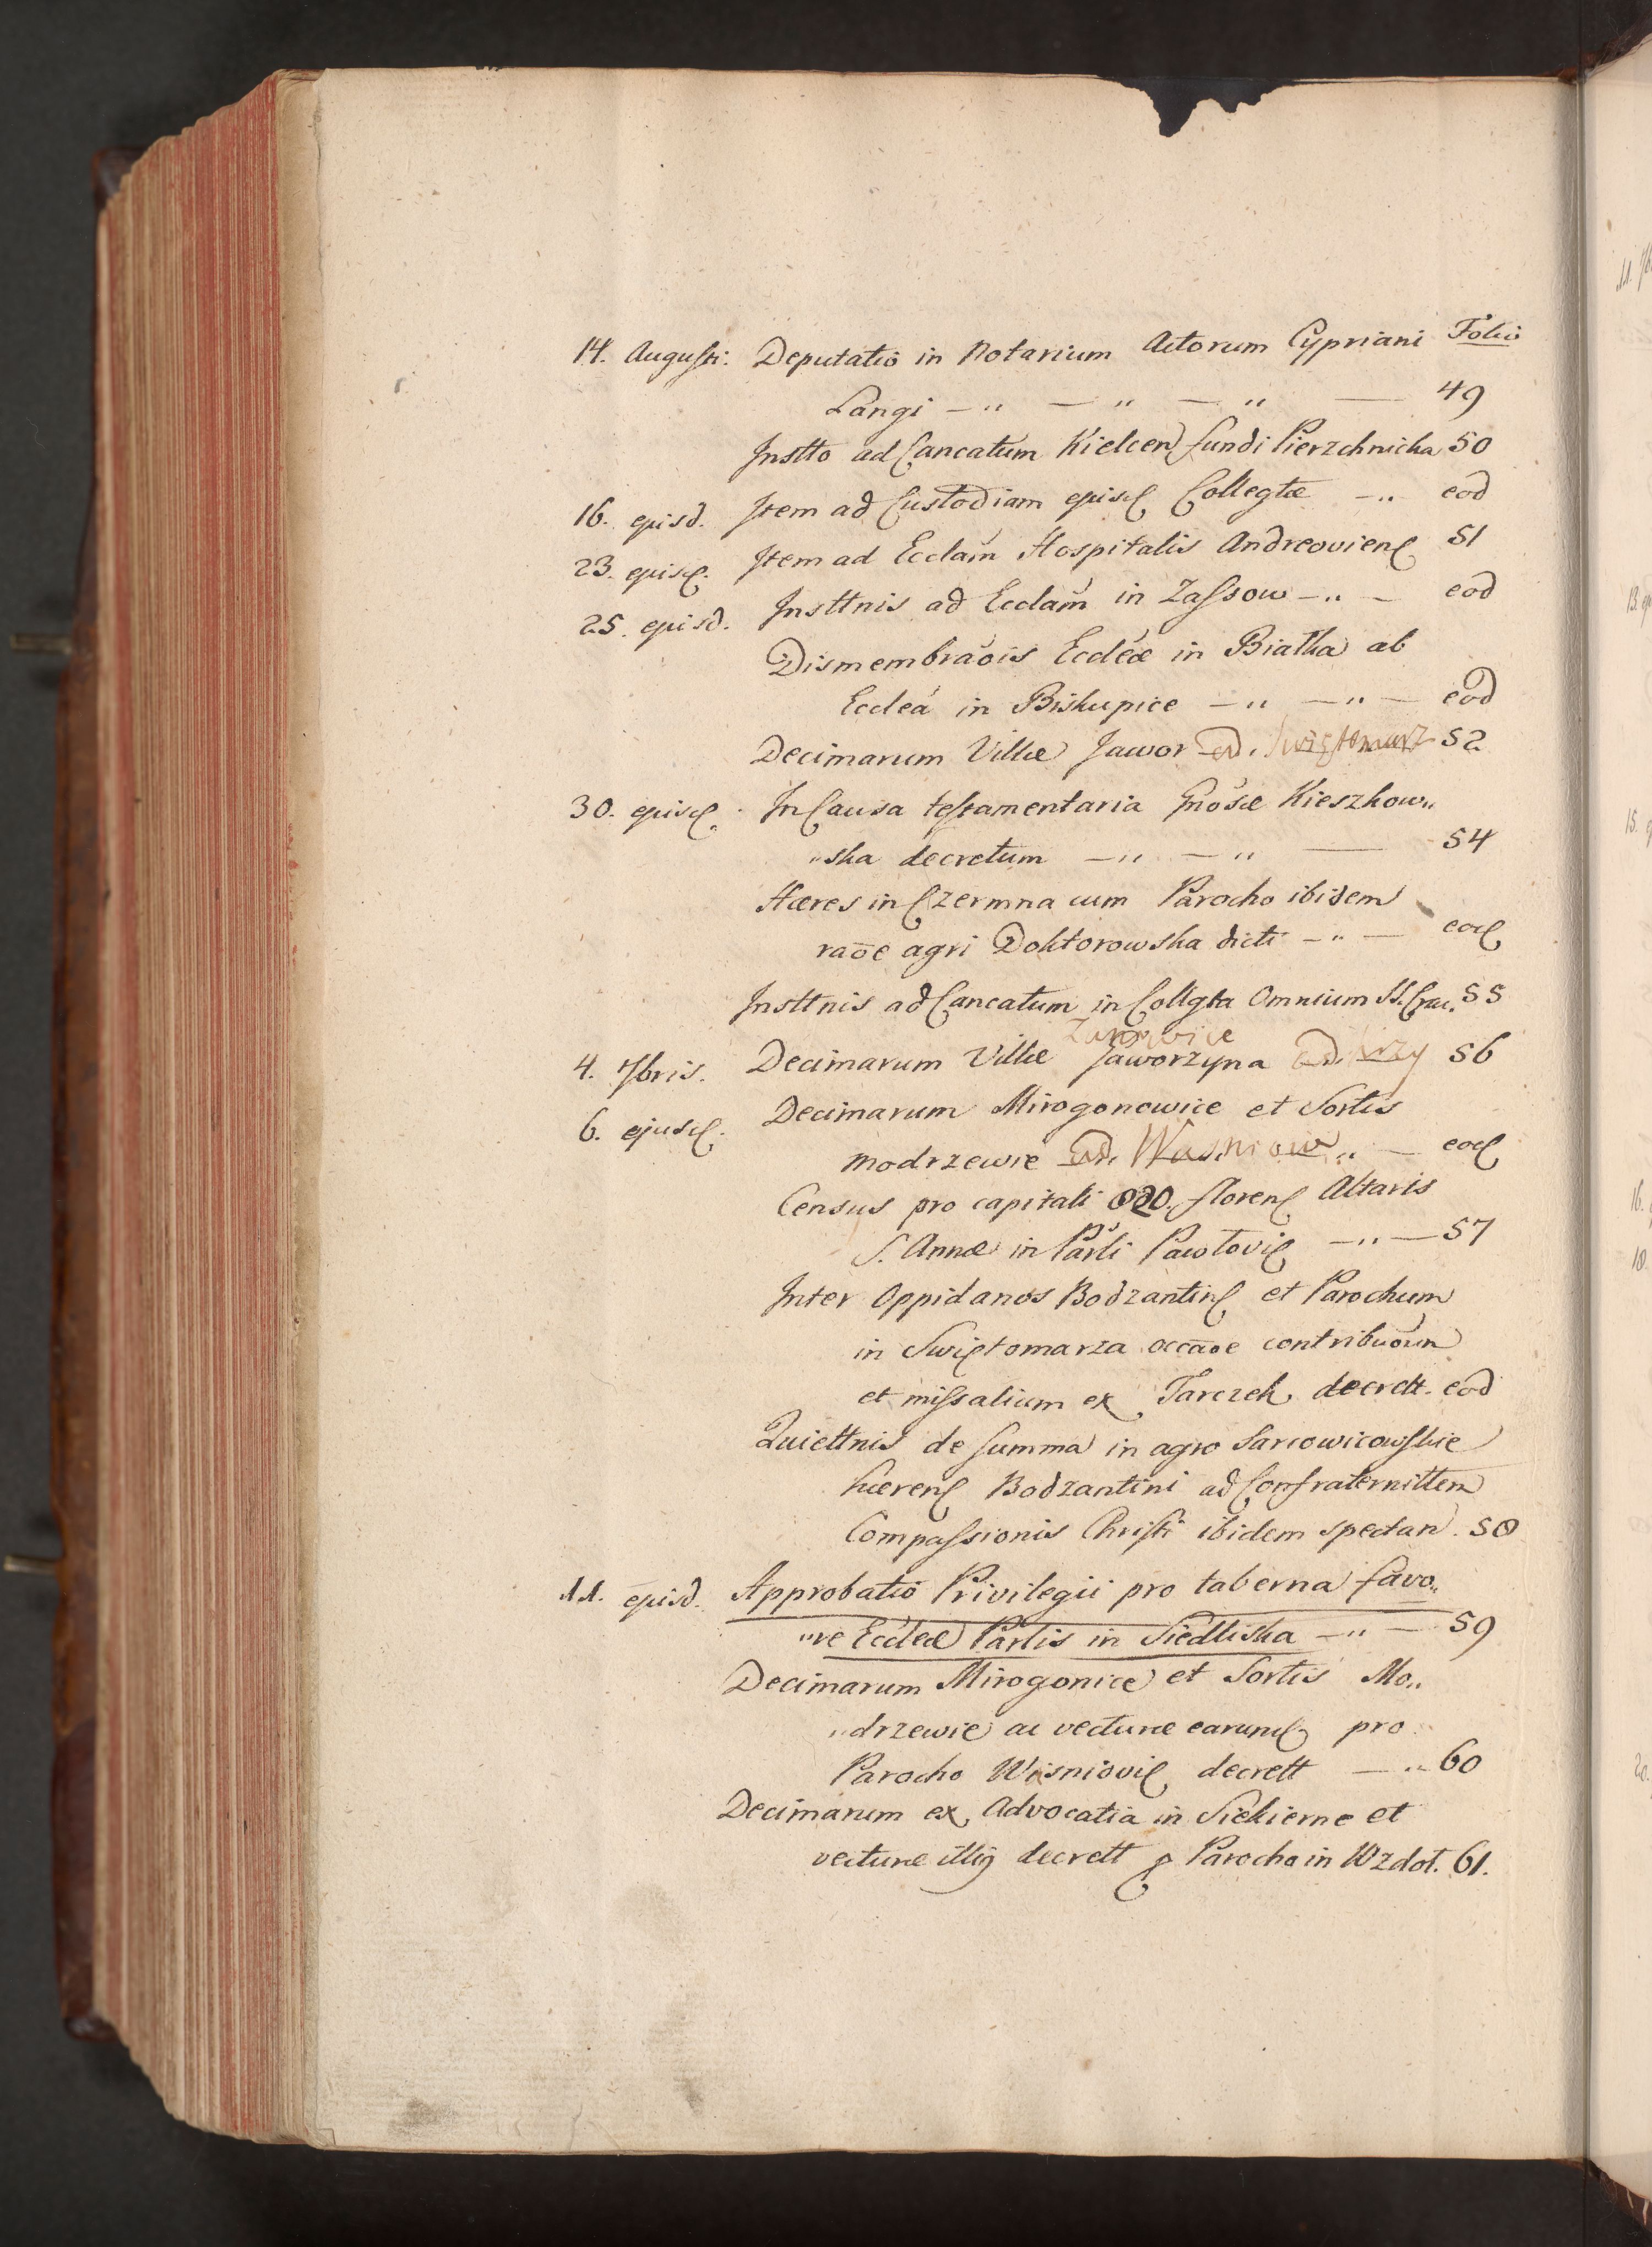 14. Augusti. Deputatio in Notarium Actorum Cypriani Folio
Langi — „ — „ — „ — 49
Instto ad Cancatum Kielcen fundi Pierzchnicka 50
16. ejusd. Item ad Custodiam ejusd Collegtæ — „ eod
23. ejusd. Item ad Ecclam Hospitalis Andreoviens 51
25. ejusd. Insttnis ad Ecclam in Zassow — „ — eod
Dismembraois Eccleæ in Białka ab
Ecclea in Biskupice — „ — „ — eod
Decimarum Villæ Jawor ad. Swiętomarz 52
30. ejusd. In Causa testamentaria Gnosæ Kieszkow„
„ska decretum — „ — „ — 54
Hæres in Czermna cum Parocho ibidem
raōe agri Doktorowska dicti — „ — eod
Insttnis ad Cancatum in Collgta Omnium SS. Crac. 55
4. 7bris. Decimarum Villæ Jaworzyna ad. 56
6. ejusd. Decimarum Mirogonowice et Sortis
Modrzewie ad. Wasniow „ — eod
Census pro capitali 820. floren Altaris
S. Annæ in Parli Pawłovi — „ — 57
Inter Oppidanos Bodzantin et Parochum
in Swiętomarza occāoe contribuōum
et missalium ex Tarczek decrett. eod
Quiettnis de summa in agro Sarcowicowskie
hæren Bodzantini ad Confraternittem
Compassionis Christi ibidem spectan. 58
11. ejusd. Approbatio Privilegii pro taberna favo„
„re Eccleæ Parlis in Siedliska — „ — 59
Decimarum Mirogonice et Sortis Mo„
„drzewie ac vecturæ earund pro
Parocho Wasniovi decrett — „ 60
Decimarum ex Advocatia in Siekierne et
vecturæ illius decrett p Parocho in Wzdoł. 61.